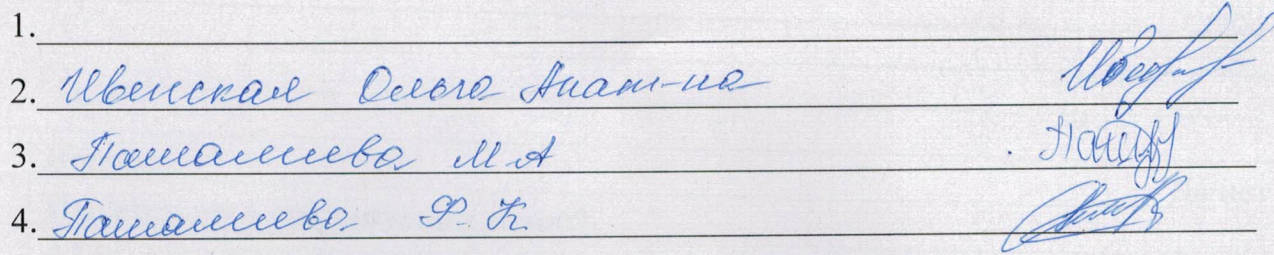 1.
2. Ивенская Ольга Анат-на
3. Пашалиева М.А
4. Пашалиева Ф.К.